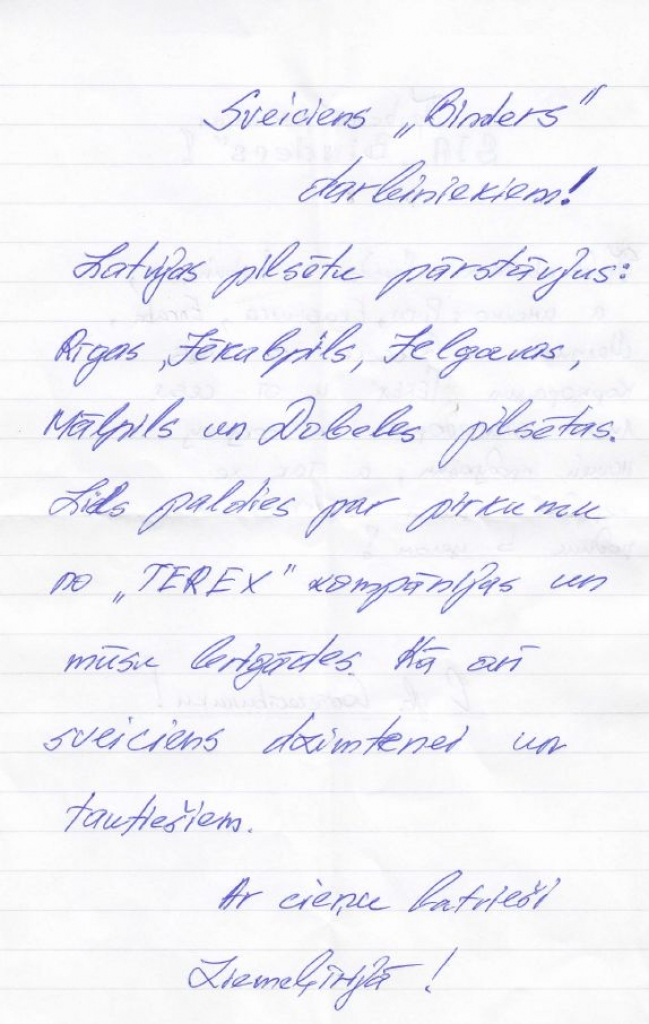 Sveiciens „Binders"
darbiniekiem!
Latvijas pilsētu pārstāvjus:
Rīgas, Jēkabpils, Jelgavas,
Mālpils un Dobeles pilsētas.
Liels paldies par pirkumu
no „TEREX" kompānijas un
mūsu brigādes. Kā arī
sveiciens dzimtenei un
tautiešiem.
Ar cieņu latvieši
Ziemeļīrijā!